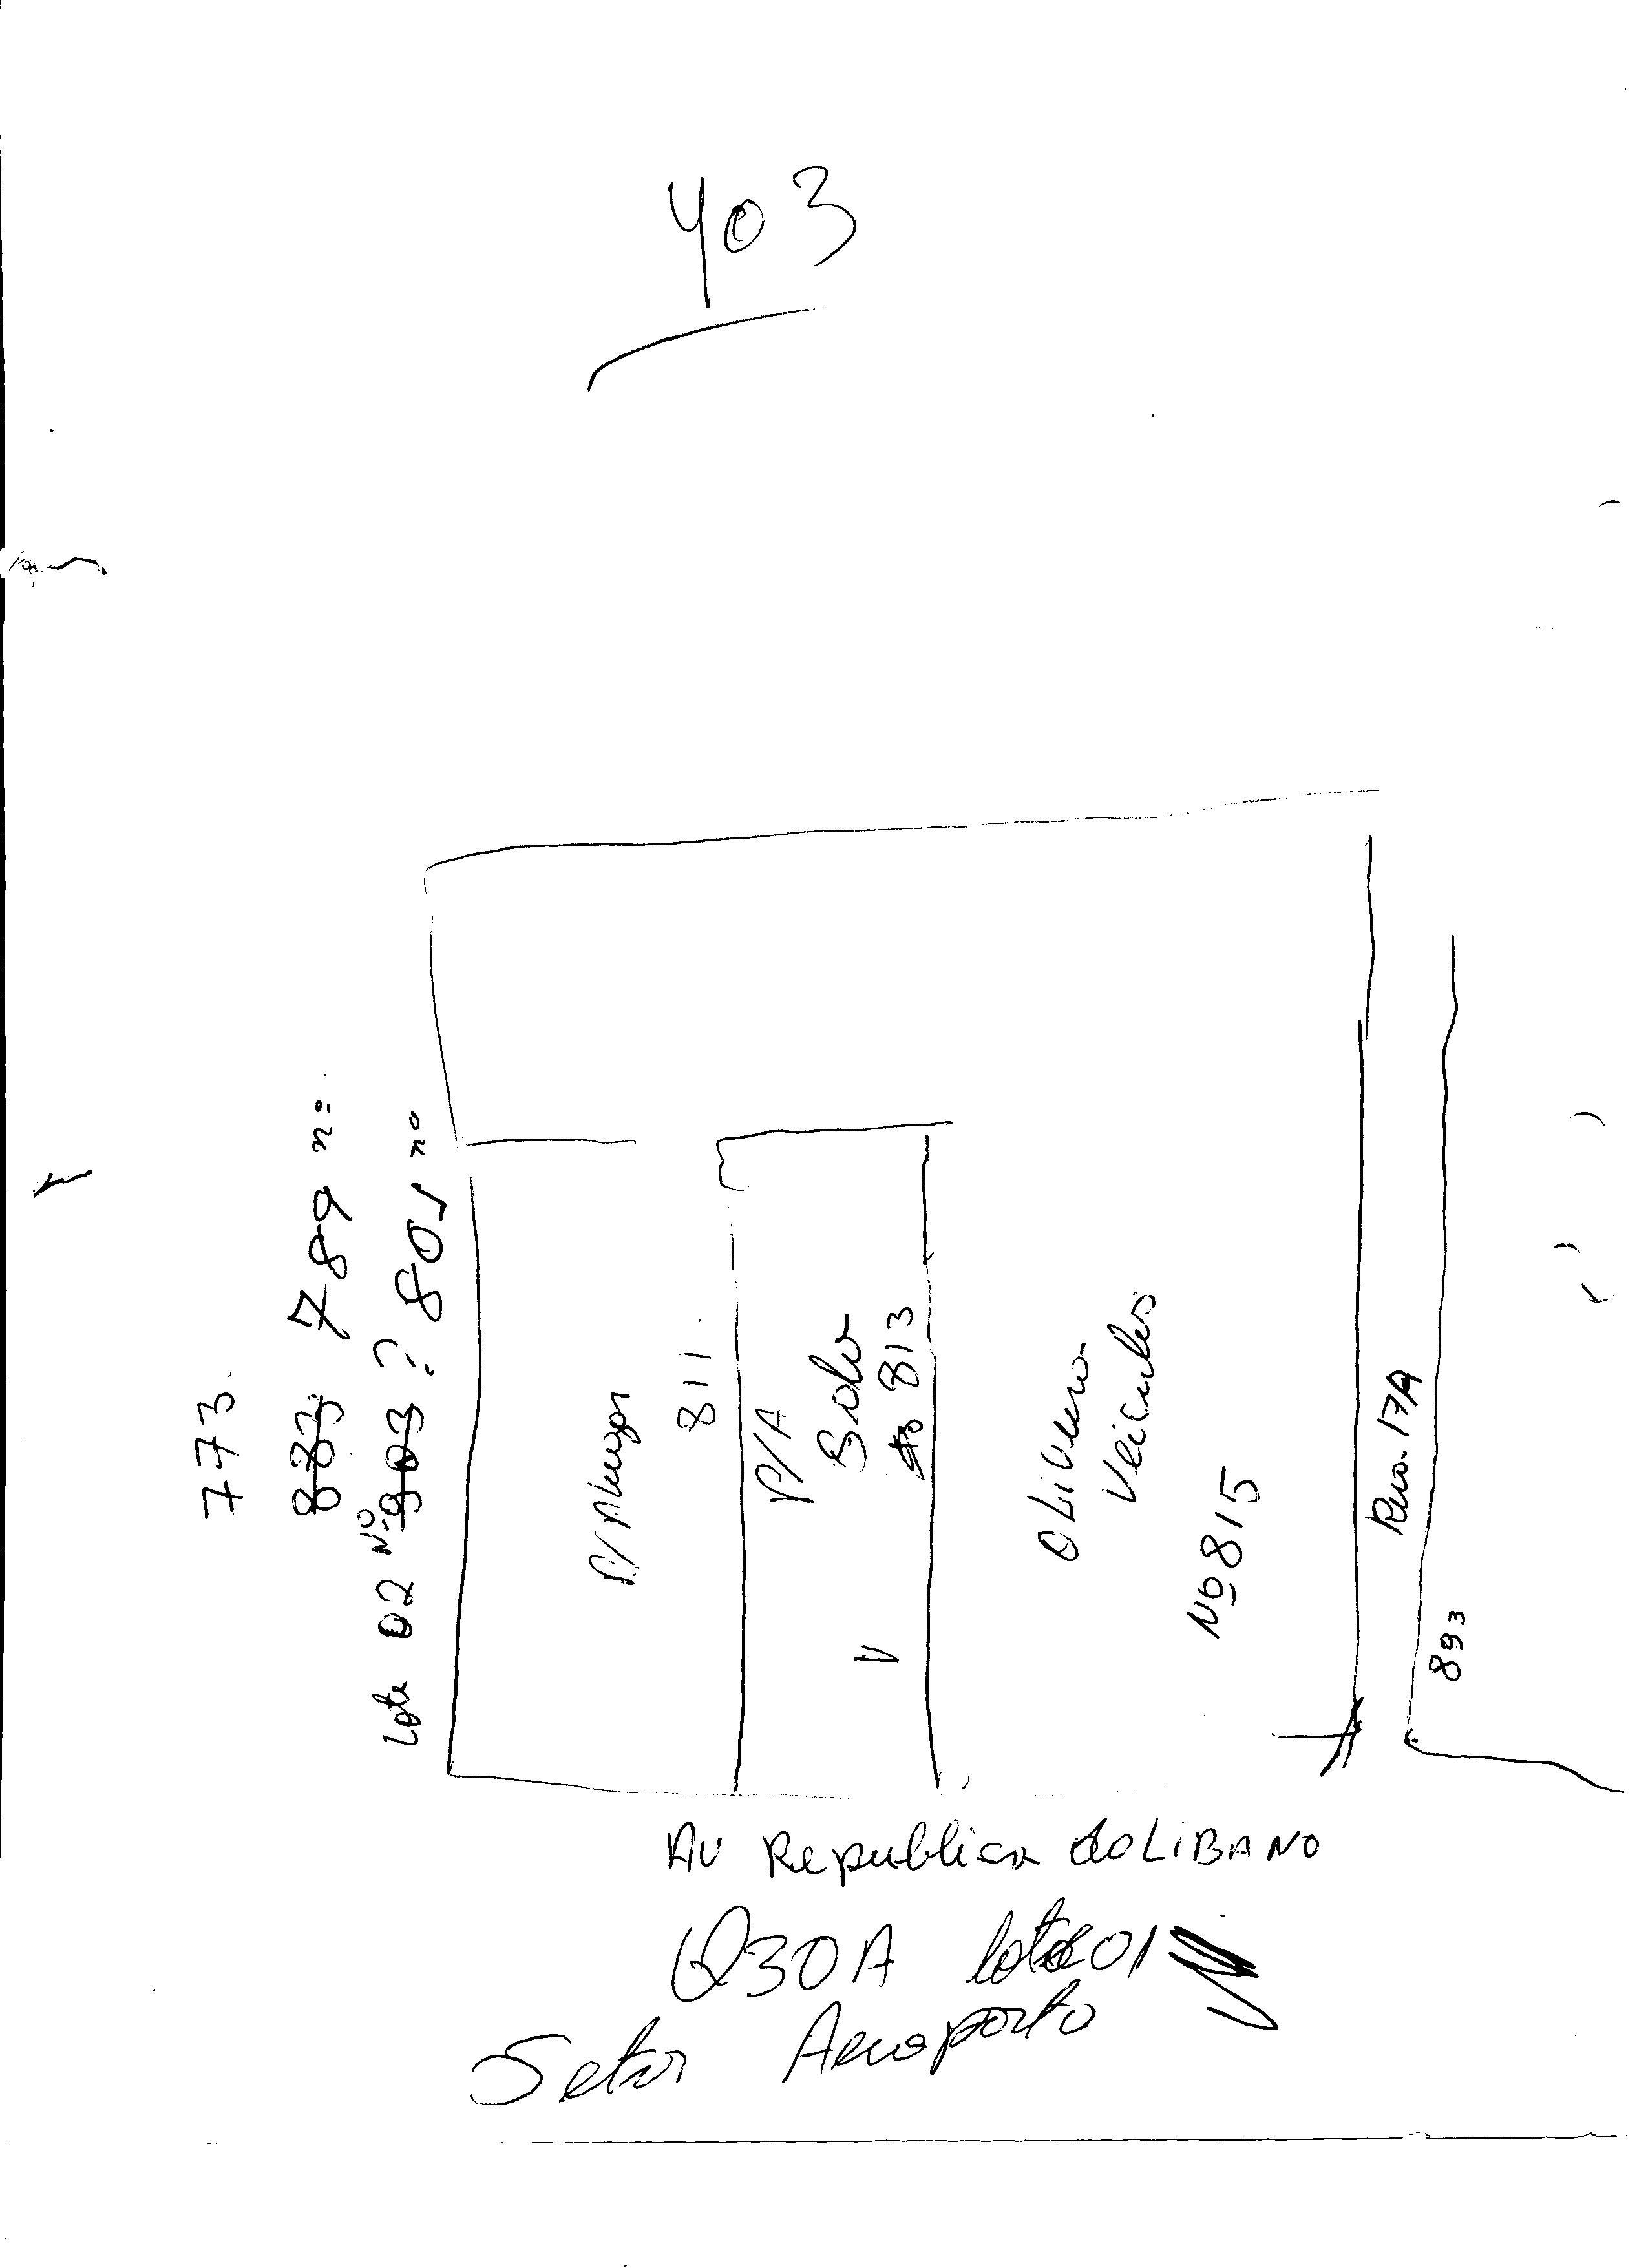 403
773
883 789 nº
Lote 02 Nº 903 ? 801 nº
P/ Alugar
811
P/A
Bolo
813
Oliveira
Veiculos
Nº 815
Rua 17A
893
AV Republica do LIBANO
Q30A lote 01
Setor Aeroporto